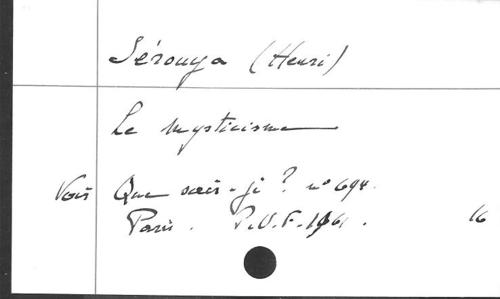 Sérouya (Henri)
Le mysticisme
Voir Que sais-je ? n° 694.
Paris. P.U.F. 1961. 16